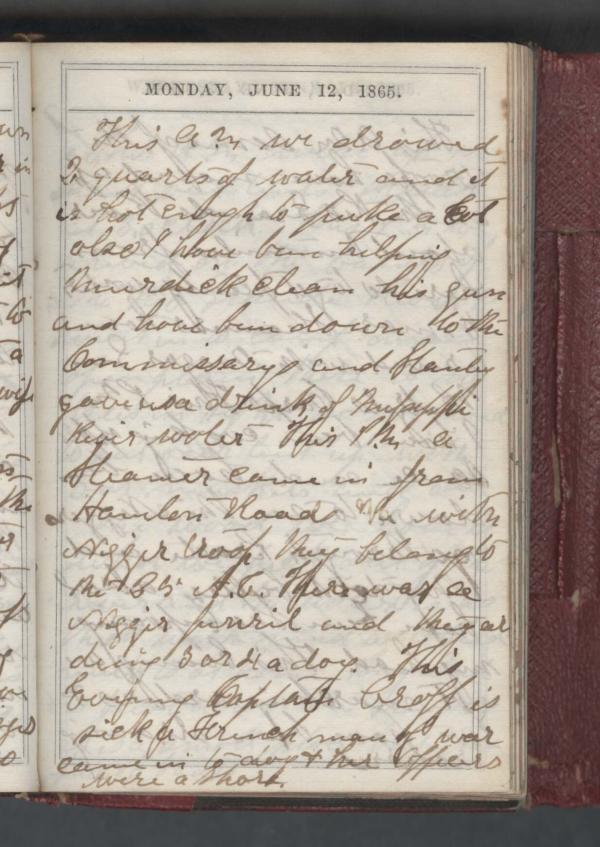 MONDAY, JUNE 12, 1865.
This A M we drowed
2 quarts of water and it
is hot enough to puke a Colt
also I have bin helping
Murdick clean his gun
and have bin down to the
Commissarys and Stanly
gave us a drink of
River water This P M a
Steamer came in from
Hamton Road with
Nigger troop they belong to
the There was a
Nigger furnril and they ar
dieing 3 or 4 a day. This
Evening Captain Croff is
sick a French man of war
came in to day & her Officers
were a shore